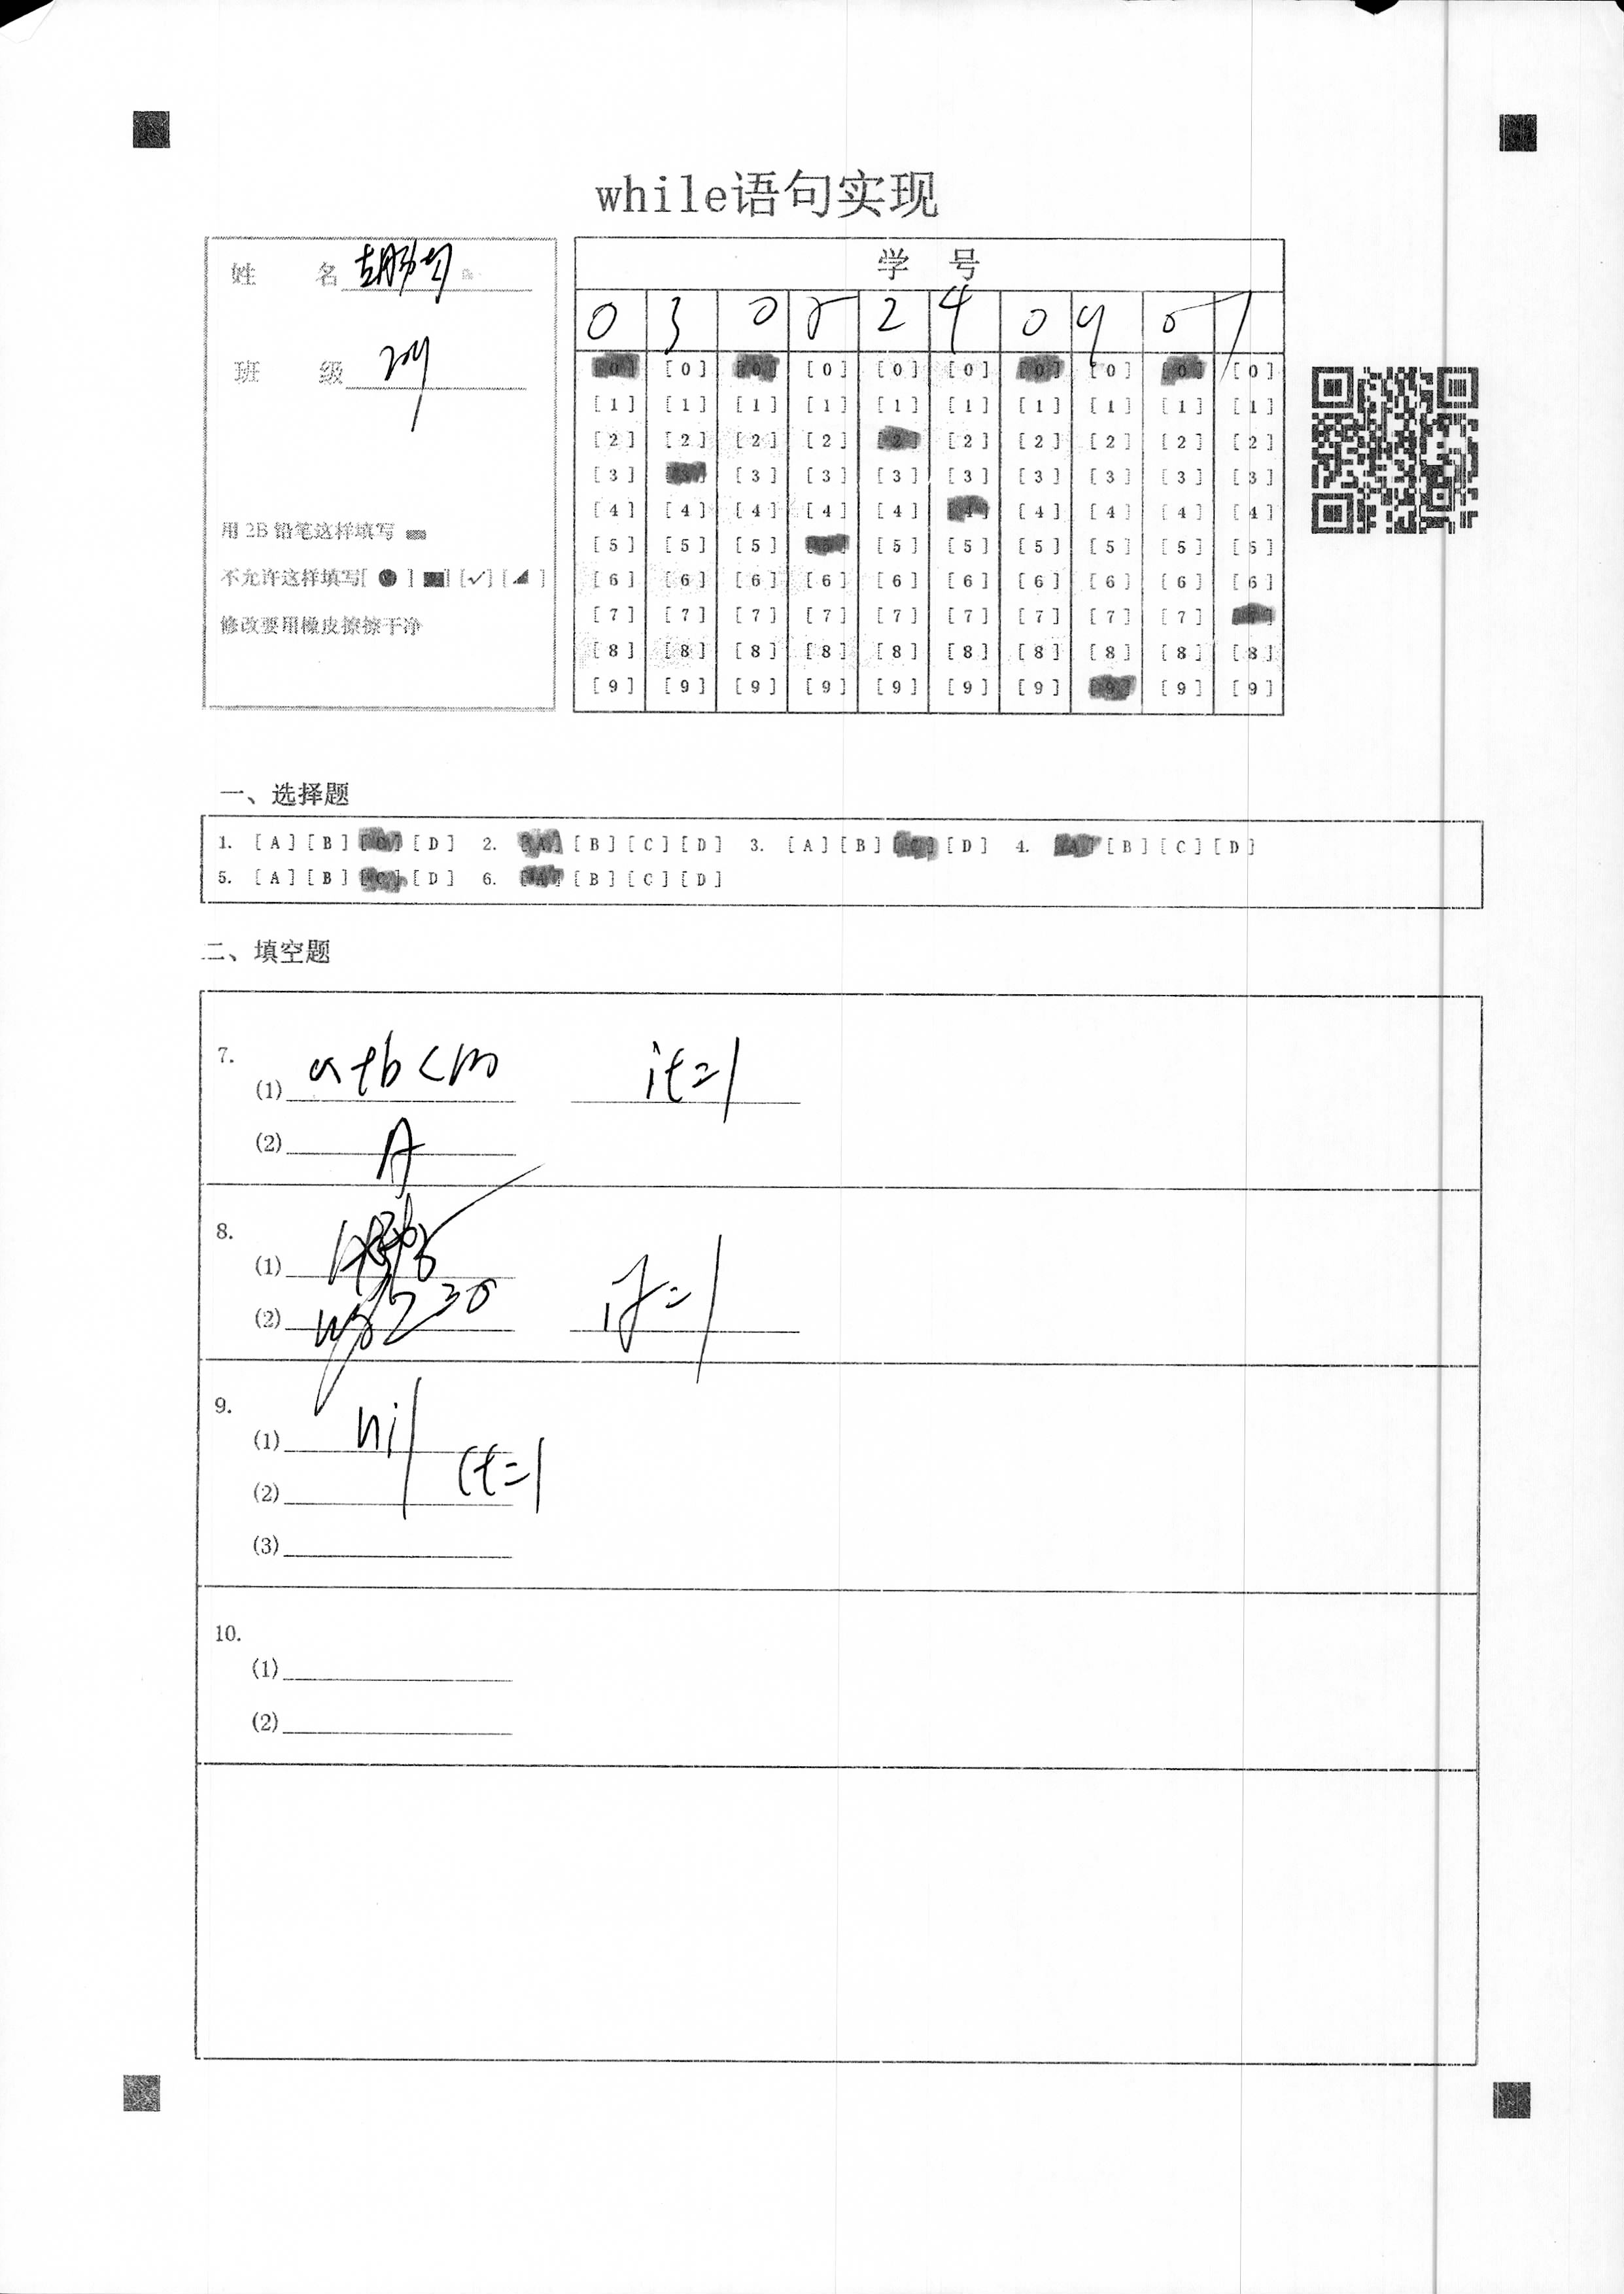 while语句实现
姓 名
班 级 209
用 2B 铅笔这样填写
不允许这样填写[ ] [ ] [✓] [ ]
修改要用橡皮擦擦干净
学 号
0 3 0 5 2 4 0 9 0 7
[0] [0] [0] [0] [0] [0] [0] [0] [0] [0]
[1] [1] [1] [1] [1] [1] [1] [1] [1] [1]
[2] [2] [2] [2] [2] [2] [2] [2] [2] [2]
[3] [3] [3] [3] [3] [3] [3] [3] [3] [3]
[4] [4] [4] [4] [4] [4] [4] [4] [4] [4]
[5] [5] [5] [5] [5] [5] [5] [5] [5] [5]
[6] [6] [6] [6] [6] [6] [6] [6] [6] [6]
[7] [7] [7] [7] [7] [7] [7] [7] [7] [7]
[8] [8] [8] [8] [8] [8] [8] [8] [8] [8]
[9] [9] [9] [9] [9] [9] [9] [9] [9] [9]
一、选择题
1. [A] [B] [C] [D] 2. [A] [B] [C] [D] 3. [A] [B] [C] [D] 4. [A] [B] [C] [D]
5. [A] [B] [C] [D] 6. [A] [B] [C] [D]
二、填空题
7.
(1) a+b<m i+=1
(2) A
8.
(1)
(2) i+=1
9.
(1) n
(2) i+=1
(3)
10.
(1)
(2)